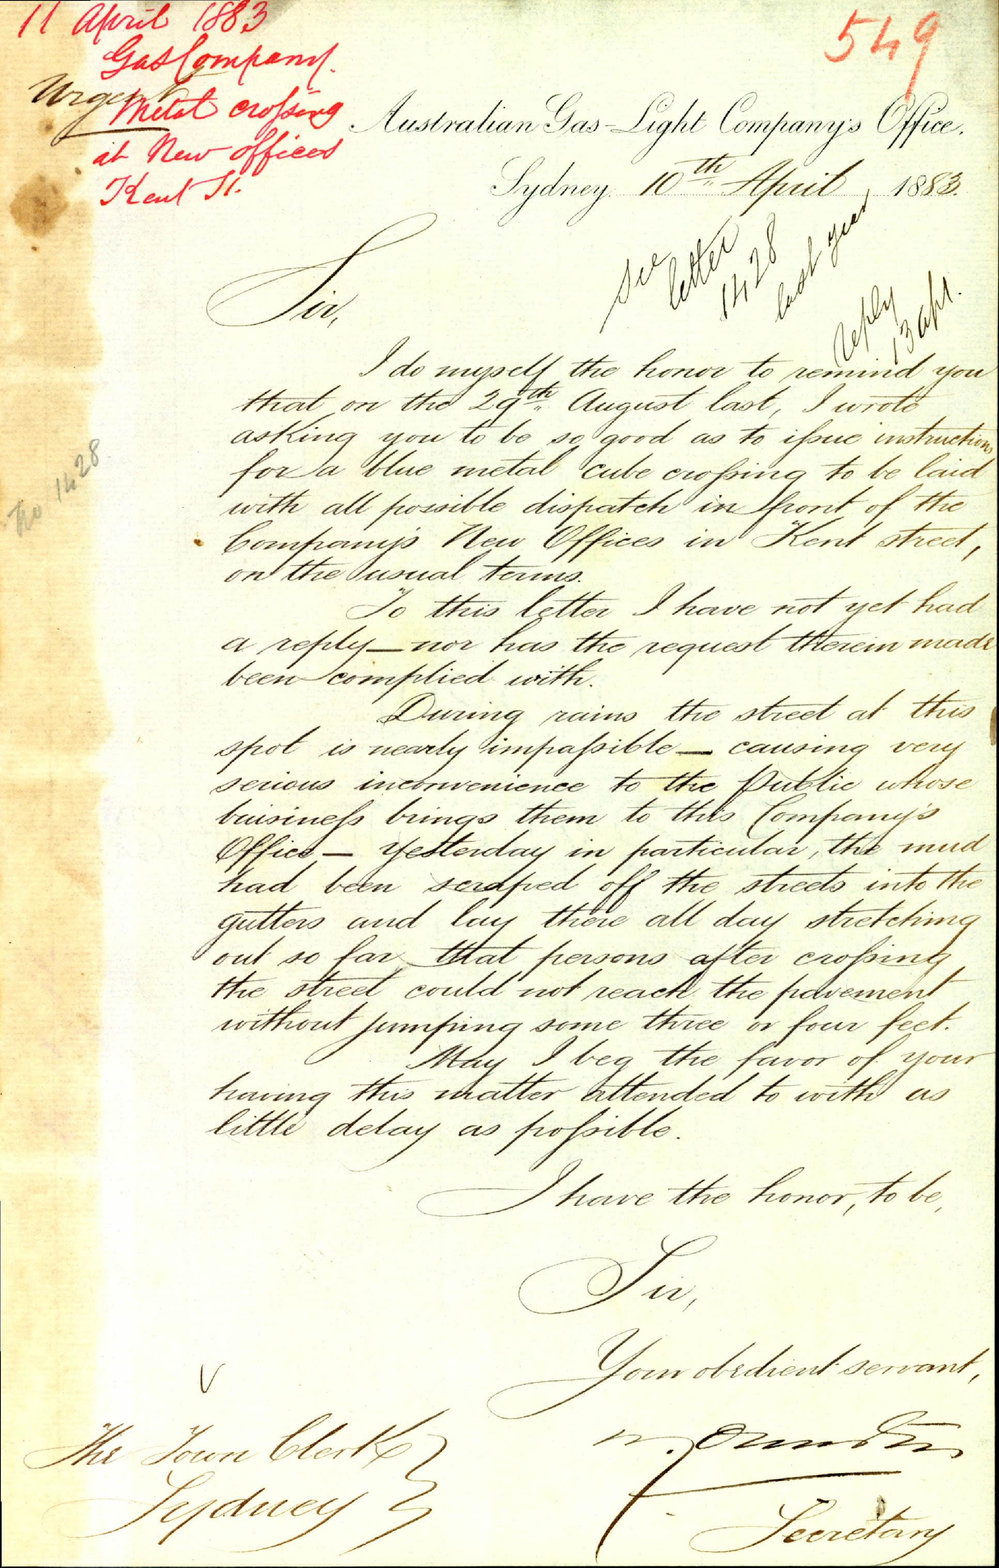 11 April 1883
Gas Company.
Urgent
Metal crossing
at New offices
Kent St.
549
Australian Gas-Light Company's Office.
Sydney 10th April 1883.
See
letter
1428
last year
reply
13 apl.
Sir,
I do myself the honor to remind you
that on the 29th August last, I wrote
asking you to be so good as to issue instructions
for a blue metal cube crossing to be laid
with all possible dispatch in front of the
Company's New Offices in Kent street,
on the usual terms.
No 1428
To this letter I have not yet had
a reply — nor has the request therein made
been complied with.
During rains the street at this
spot is nearly impassible — causing very
serious inconvenience to the Public whose
buisiness brings them to this Company's
Office — Yesterday in particular, the mud
had been scraped off the streets into the
gutters and lay there all day stretching
out so far that persons after crossing
the street could not reach the pavement
without jumping some three or four feet.
May I beg the favor of your
having this matter attended to with as
little delay as possible.
I have the honor, to be,
Sir,
Your obedient servant,
Secretary
The Town Clerk
Sydney